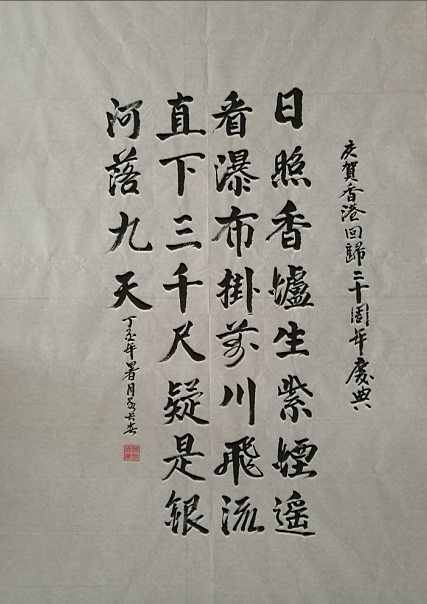 庆賀香港回歸二十周年慶典
日照香爐生紫煙遥
看瀑布掛前川飛流
直下三千尺疑是銀
河落九天
丁酉年署月